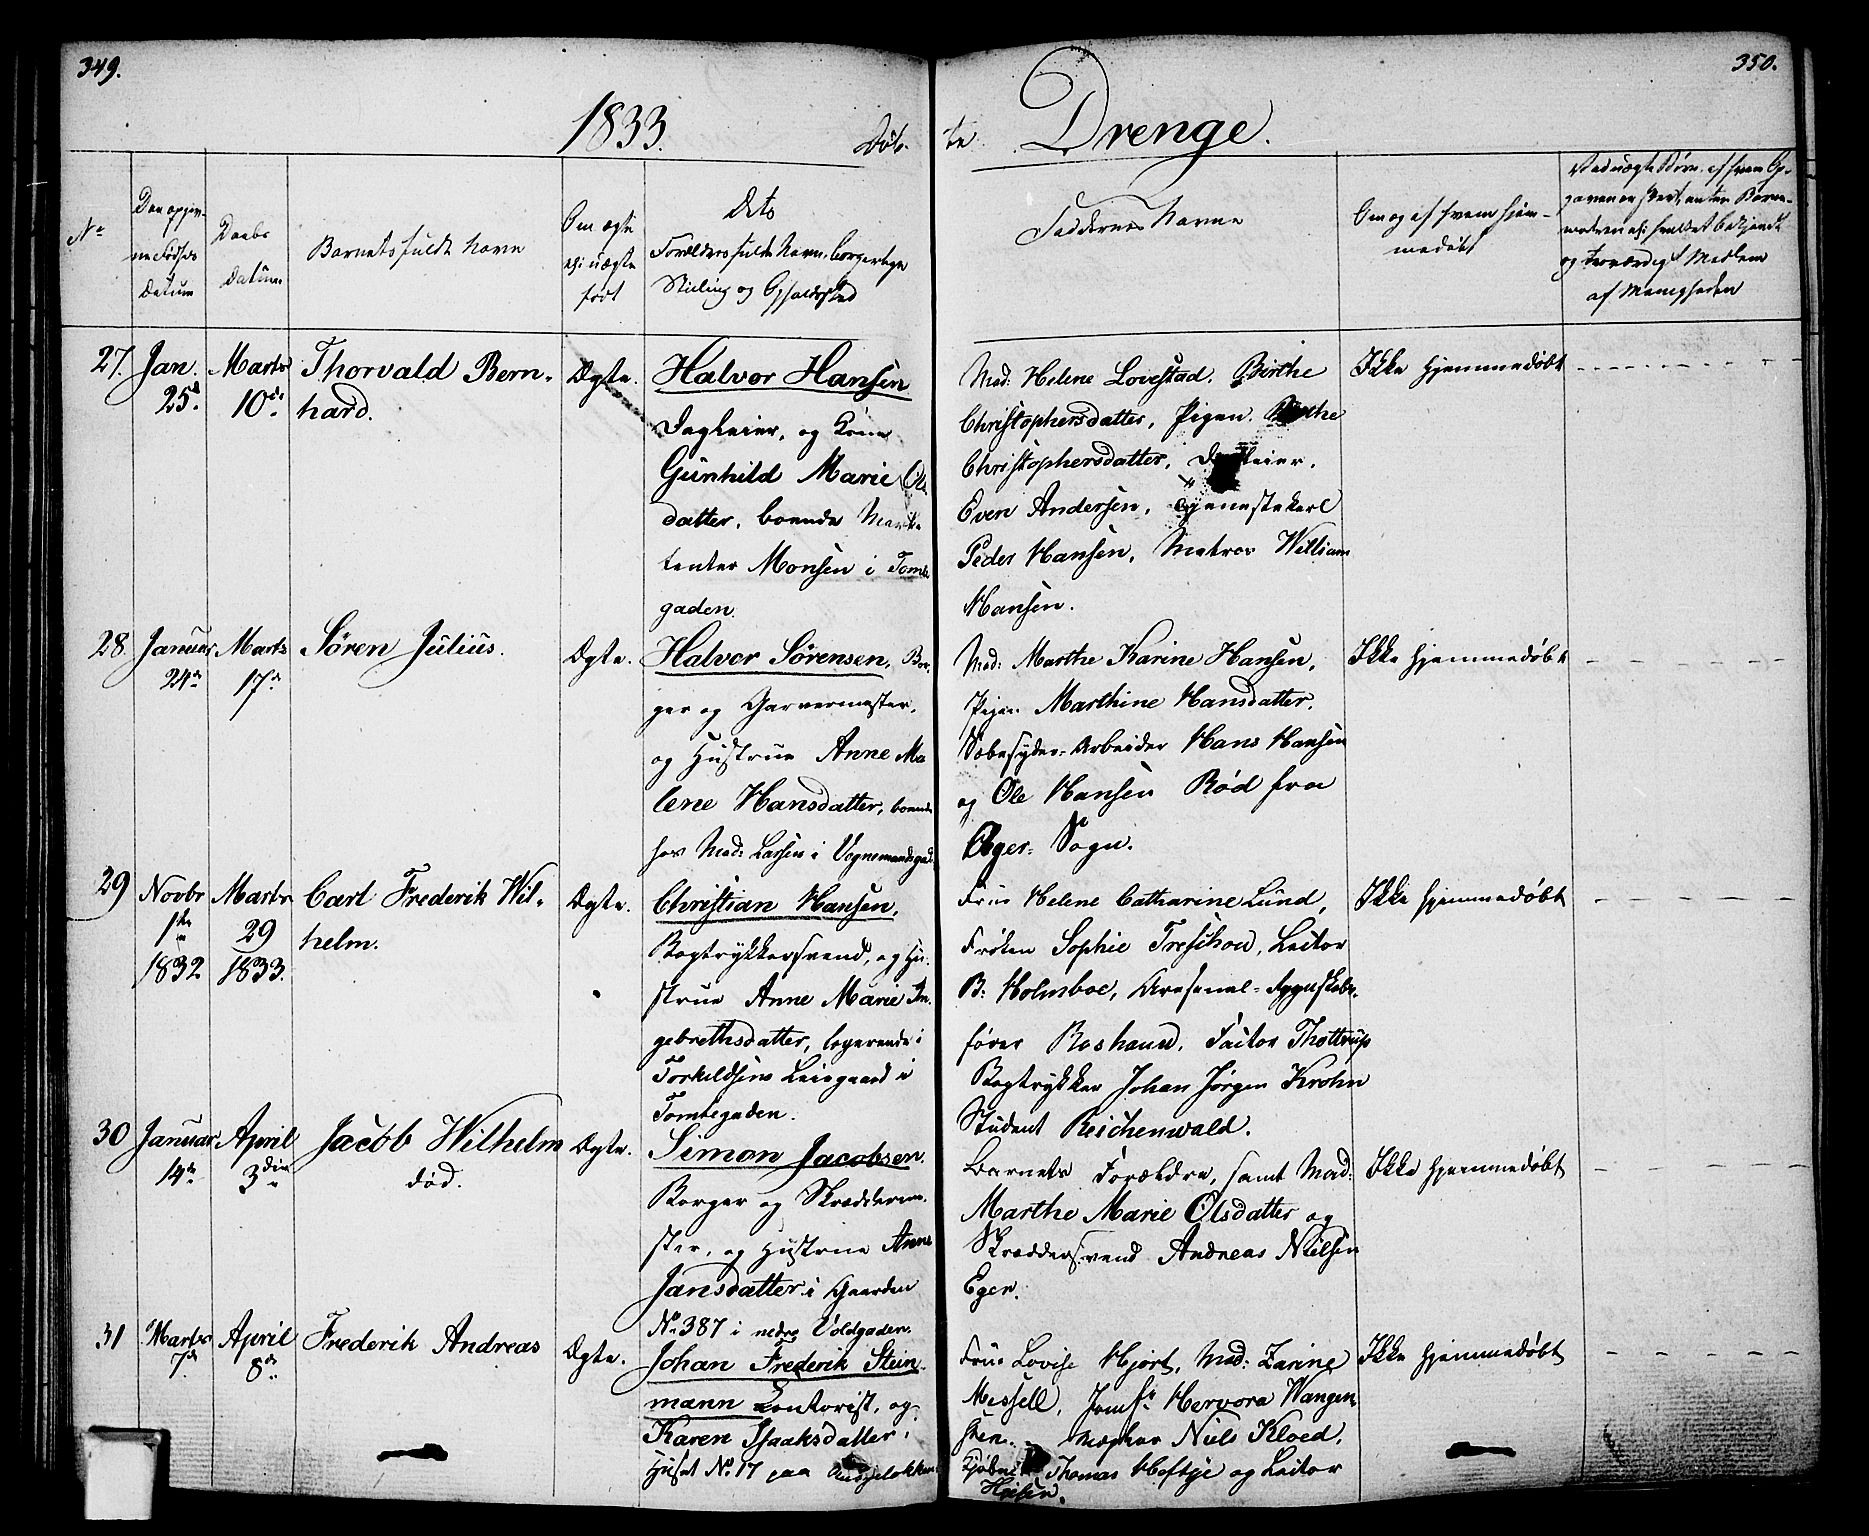 349.
350.
1833. Døb- te Drenge.
No
Den opgiv-
ne Fødsels
Datum
Daabs
Datum
Barnets fulde Navn
Om ægte
ell: uægte
født
Dets
Forældres fulde Navn, borgerlige
Stilling og Opholdssted
Faddernes Navne
Om og af hvem hjem-
medøbt
Ved uægte Børn, af hvem Op-
gaven er skeet, enten Barne-
moderen ell: hvilket bekjendt
og troværdigt Medlem
af Menigheden
27. Jan. 25de
Marts 10de
Thorvald Bern-
hard.
Ægte.
Halvor Hansen
Dagleier, og Kone
Gunhild Marie Ols
datter, boende Marke
tenter Monsen i Tomte
gaden.
Mad: Helene Lovestad, Birthe
Christophersdatter, Pigen Birthe
Christophersdatter, Dagleier.
Even Andersen, Tjenestekarl
Peder Hansen, Matros William
Hansen.
Ikke hjemmedøbt
28. Januar 24de
Marts 17de
Søren Julius.
Ægte.
Halvor Sørensen, Bor-
ger og Garvermester,
og Hustrue Anne Ma
lene Hansdatter, boende
hos Mad: Larsen i Vognmandsgad.
Mad: Marthe Karine Hansen,
Pigen Marthine Hansdatter,
Sæbesyder-Arbeider Hans Hansen
og Ole Hansen Rød fra
Eger-Sogn.
Ikke hjemmedøbt
29 Novbr 1ste 1832
Marts 29 1833.
Carl Frederik Wil-
helm.
Ægte.
Christian Hansen,
Bogtrykkersvend, og Hu-
strue Anne Marie In-
gebrethsdatter, logerende i
Torkildsens Leiegaard i
Tomtegaden.
Frue Helene Catharine Lund,
Frøken Sophie Treschow, Lector
B: Holmboe, Arsenal-Regnskabs-
fører Boshaud, Factor Thottrup
Bogtrykker Johan Jørgen Krohn
Student Reichenwald.
Ikke hjemmedøbt
30 Januar 14de
April 3die
Jacob Wilhelm
død.
Ægte.
Simon Jacobsen.
Borger og Skrædderme-
ster, og Hustrue Anne
Jansdatter i Gaarden
No 387 i nedre Voldgaden.
Barnets Forældre, samt Mad:
Marthe Marie Olsdatter og
Skræddersvend Andreas Nielsen
Eger.
Ikke hjemmedøbt
31 Marts 7de
April 8de
Frederik Andreas
Ægte.
Johan Frederik Stein-
mann Contorist, og
Karen Isaaksdatter,
Huset No 17 paa
Frue Lovise Hjort, Mad: Zarine
Messell, Jomf: Hervora Wangen-
steen. Niels Kloed,
Thomas Heftye og Lector